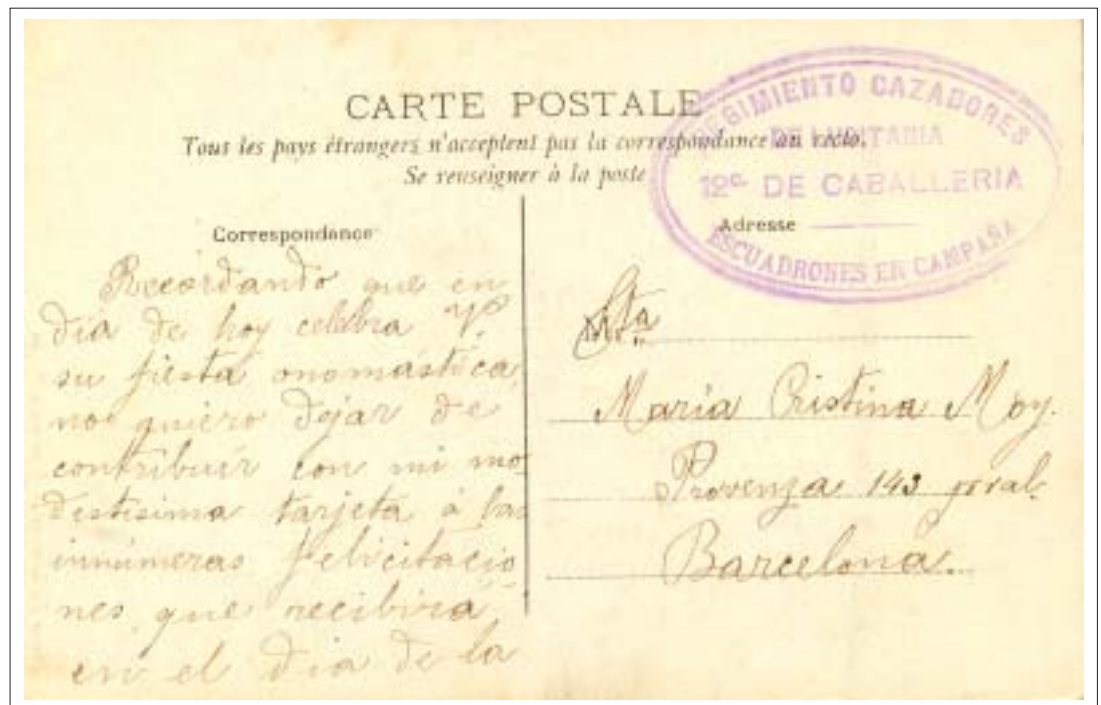 CARTE POSTALE
Tous les pays étrangers n'acceptent pas la correspondance au recto.
Se renseigner à la poste
REGIMIENTO CAZADORES
DE LUSITANIA
12º DE CABALLERIA
ESCUADRONES EN CAMPAÑA
Correspondance
Recordando que en
dia de hoy celebra Vd
su fiesta onomástica,
no quiero dejar de
contribuir con mi mo
destisima tarjeta á las
innúmeras felicitacio
nes que recibirá
en el dia de la
Adresse
Sta
Maria Cristina Moy.
Provenza 143 pral.
Barcelona.